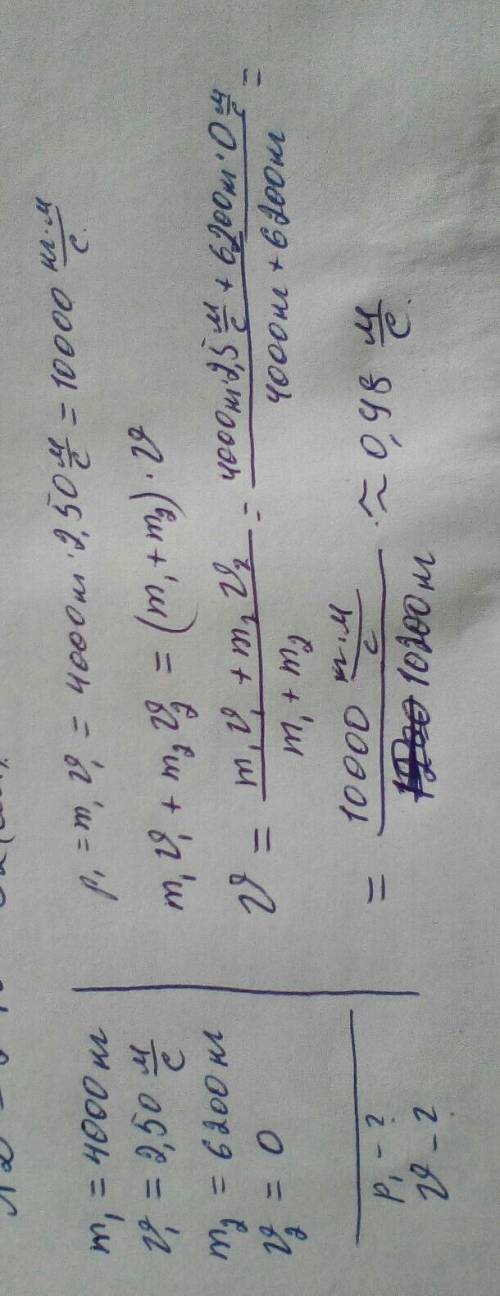 m₁ = 4000 кг
ϑ₁ = 2,50 м/с
m₂ = 6200 кг
ϑ₂ = 0
p₁ - ?
ϑ - ?
p₁ = m₁ ϑ₁ = 4000 кг · 2,50 м/с = 10000 кг·м/с
m₁ ϑ₁ + m₂ ϑ₂ = (m₁ + m₂) · ϑ
ϑ = (m₁ ϑ₁ + m₂ ϑ₂)/(m₁ + m₂) = (4000 кг · 2,5 м/с + 6200 кг · 0 м/с)/(4000 кг + 6200 кг) =
= (10000 кг·м/с)/(10200 кг) ≈ 0,98 м/с.